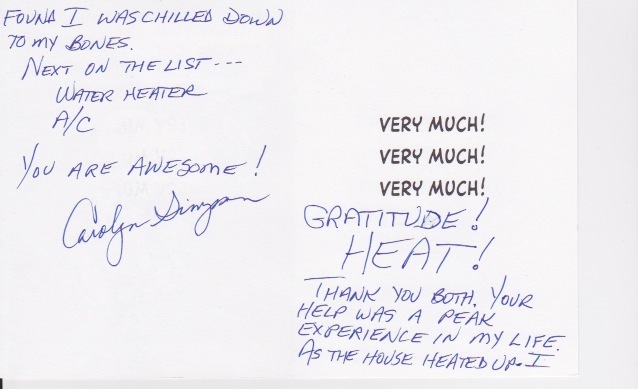 VERY MUCH!
VERY MUCH!
VERY MUCH!
GRATITUDE!
HEAT!
THANK YOU BOTH. YOUR
HELP WAS A PEAK
EXPERIENCE IN MY LIFE.
AS THE HOUSE HEATED UP. I
FOUND I WAS CHILLED DOWN
TO MY BONES.
NEXT ON THE LIST---
WATER HEATER
A/C
YOU ARE AWESOME!
Carolyn Simpson